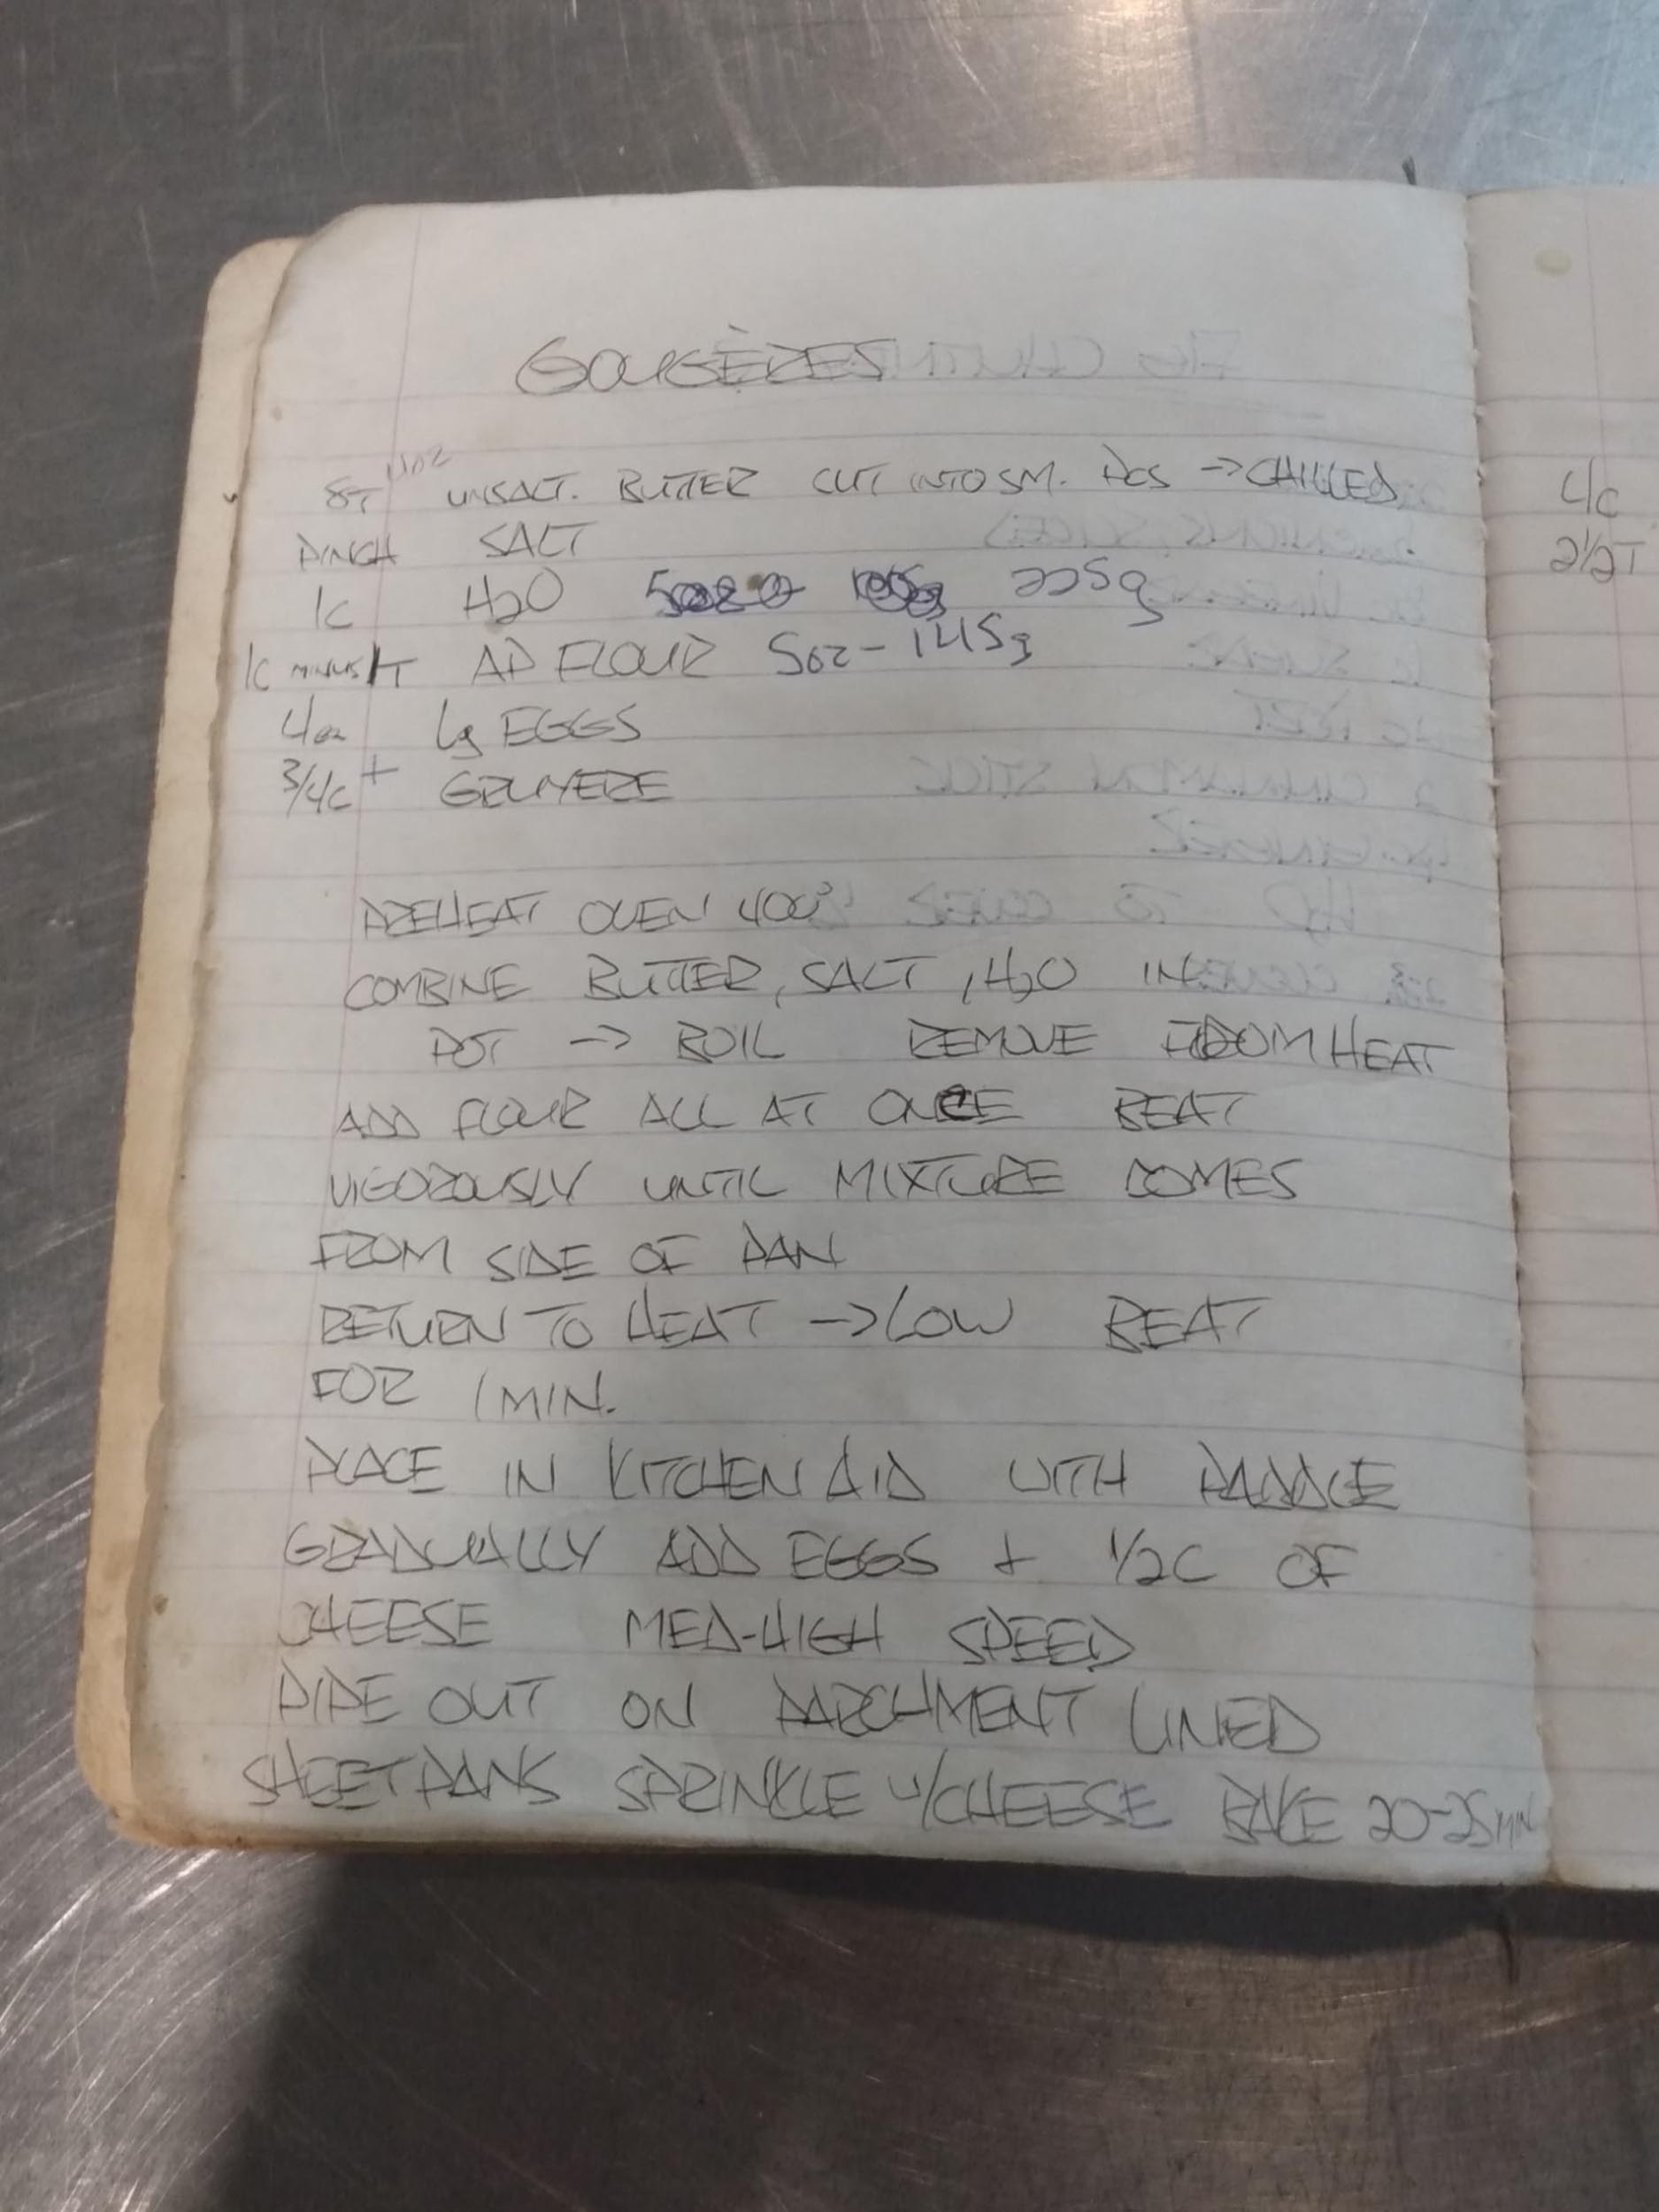 GOUGÈRES
8T 4OZ UNSALT. BUTTER CUT INTO SM. PCS -> CHILLED
PINCH SALT
1C H2O 225g
1C MINUS 1T AP FLOUR 5oz - 145g
4ea lg EGGS
3/4C + GRUYERE
PREHEAT OVEN 400°
COMBINE BUTTER, SALT, H2O IN
POT -> BOIL REMOVE FROM HEAT
ADD FLOUR ALL AT ONCE BEAT
VIGOROUSLY UNTIL MIXTURE COMES
FROM SIDE OF PAN
RETURN TO HEAT -> LOW BEAT
FOR 1 MIN.
PLACE IN KITCHEN AID WITH PADDLE
GRADUALLY ADD EGGS + 1/2C OF
CHEESE MED-HIGH SPEED
PIPE OUT ON PARCHMENT LINED
SHEETPANS SPRINKLE W/CHEESE BAKE 20-25 MIN
4C
2 1/2T